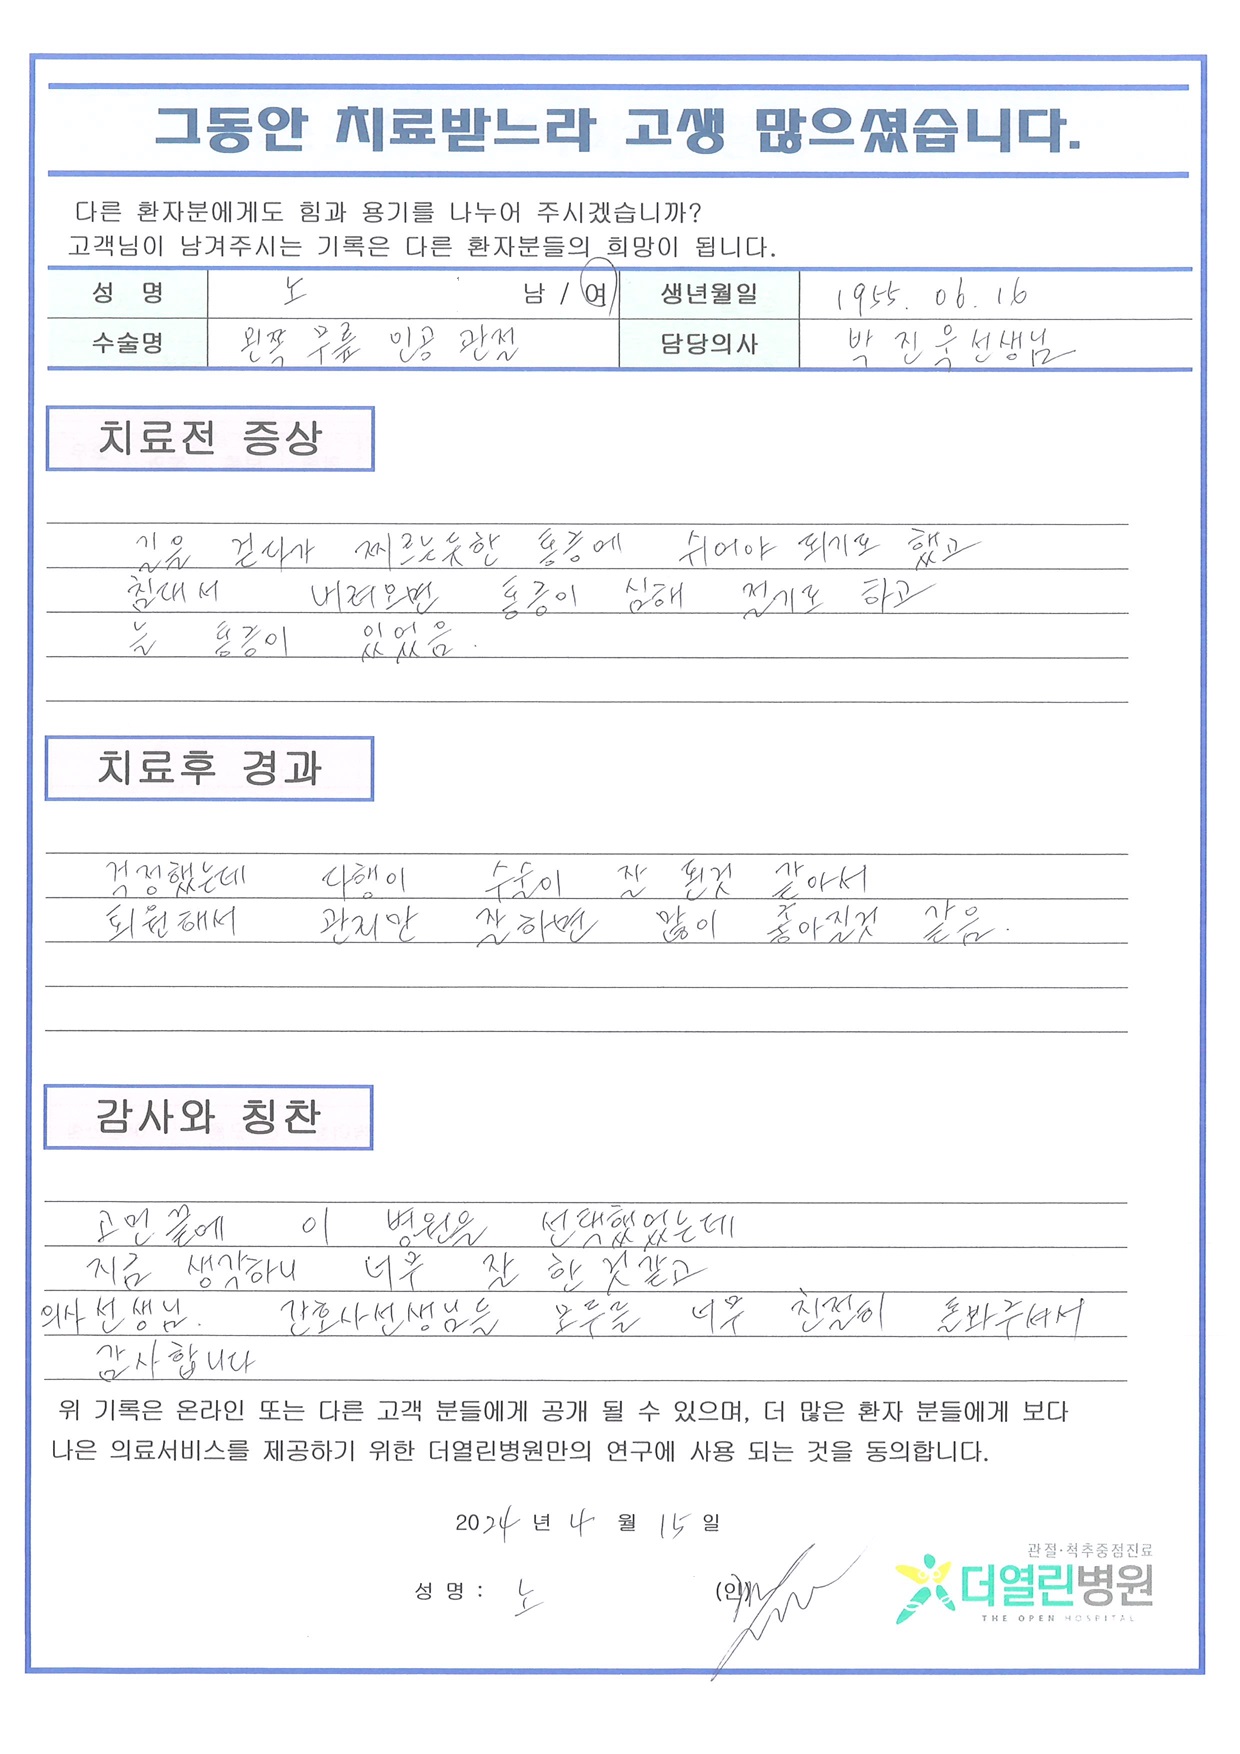 그동안 치료받느라 고생 많으셨습니다.
다른 환자분에게도 힘과 용기를 나누어 주시겠습니까?
고객님이 남겨주시는 기록은 다른 환자분들의 희망이 됩니다.
성 명 노 남 / 여 생년월일 1955. 06. 16
수술명 왼쪽 무릎 인공 관절 담당의사 박진욱선생님
치료전 증상
길을 걷다가 찌르는듯한 통증에 쉬어야 되기도 했고
침대서 내려오면 통증이 심해 절기도 하고
는 통증이 있었음.
치료후 경과
걱정했는데 다행이 수술이 잘 된것 같아서
퇴원해서 관리만 잘하면 많이 좋아질것 같음.
감사와 칭찬
고민끝에 이 병원을 선택했었는데
지금 생각하니 너무 잘 한것같고
의사선생님. 간호사선생님들 모두들 너무 친절히 돌봐주셔서
감사합니다
위 기록은 온라인 또는 다른 고객 분들에게 공개 될 수 있으며, 더 많은 환자 분들에게 보다
나은 의료서비스를 제공하기 위한 더열린병원만의 연구에 사용 되는 것을 동의합니다.
2024 년 4 월 15 일
관절·척추중점진료
성 명 : 노 (인) 더열린병원
THE OPEN HOSPITAL